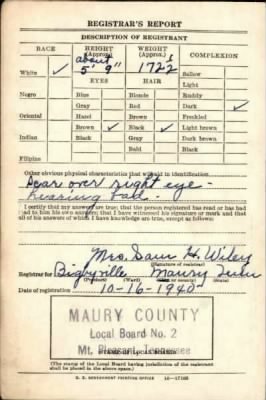 REGISTRAR'S REPORT
DESCRIPTION OF REGISTRANT
RACE HEIGHT (Approx.) WEIGHT (Approx.) COMPLEXION
about
White ✓ 5' 9" 172 Sallow
EYES HAIR Light
Negro Blue Blonde Ruddy
Gray Red Dark ✓
Oriental Hand Brown Freckled
Brown ✓ Black ✓ Light brown
Indian Black Gray Dark brown
Bald Black
Filipino
Other obvious physical characteristics that will aid in identification
Scar over right eye-
hearing bad-
I certify that my answers are true; that the person registered has read or has had
read to him his own answers; that I have witnessed his signature or mark and that
all of his answers of which I have knowledge are true, except as follows:
Mrs. Sam H. Wiley
(Signature of registrar)
Registrar for Bigbyville Maury Tenn
(Precinct) (Ward) (City or county) (State)
Date of registration 10-16-1940
MAURY COUNTY
Local Board No. 2
Mt. Pleasant, Tennessee
(The stamp of the Local Board having jurisdiction of the registrant
shall be placed in the above space.)
U. S. GOVERNMENT PRINTING OFFICE 16-17105